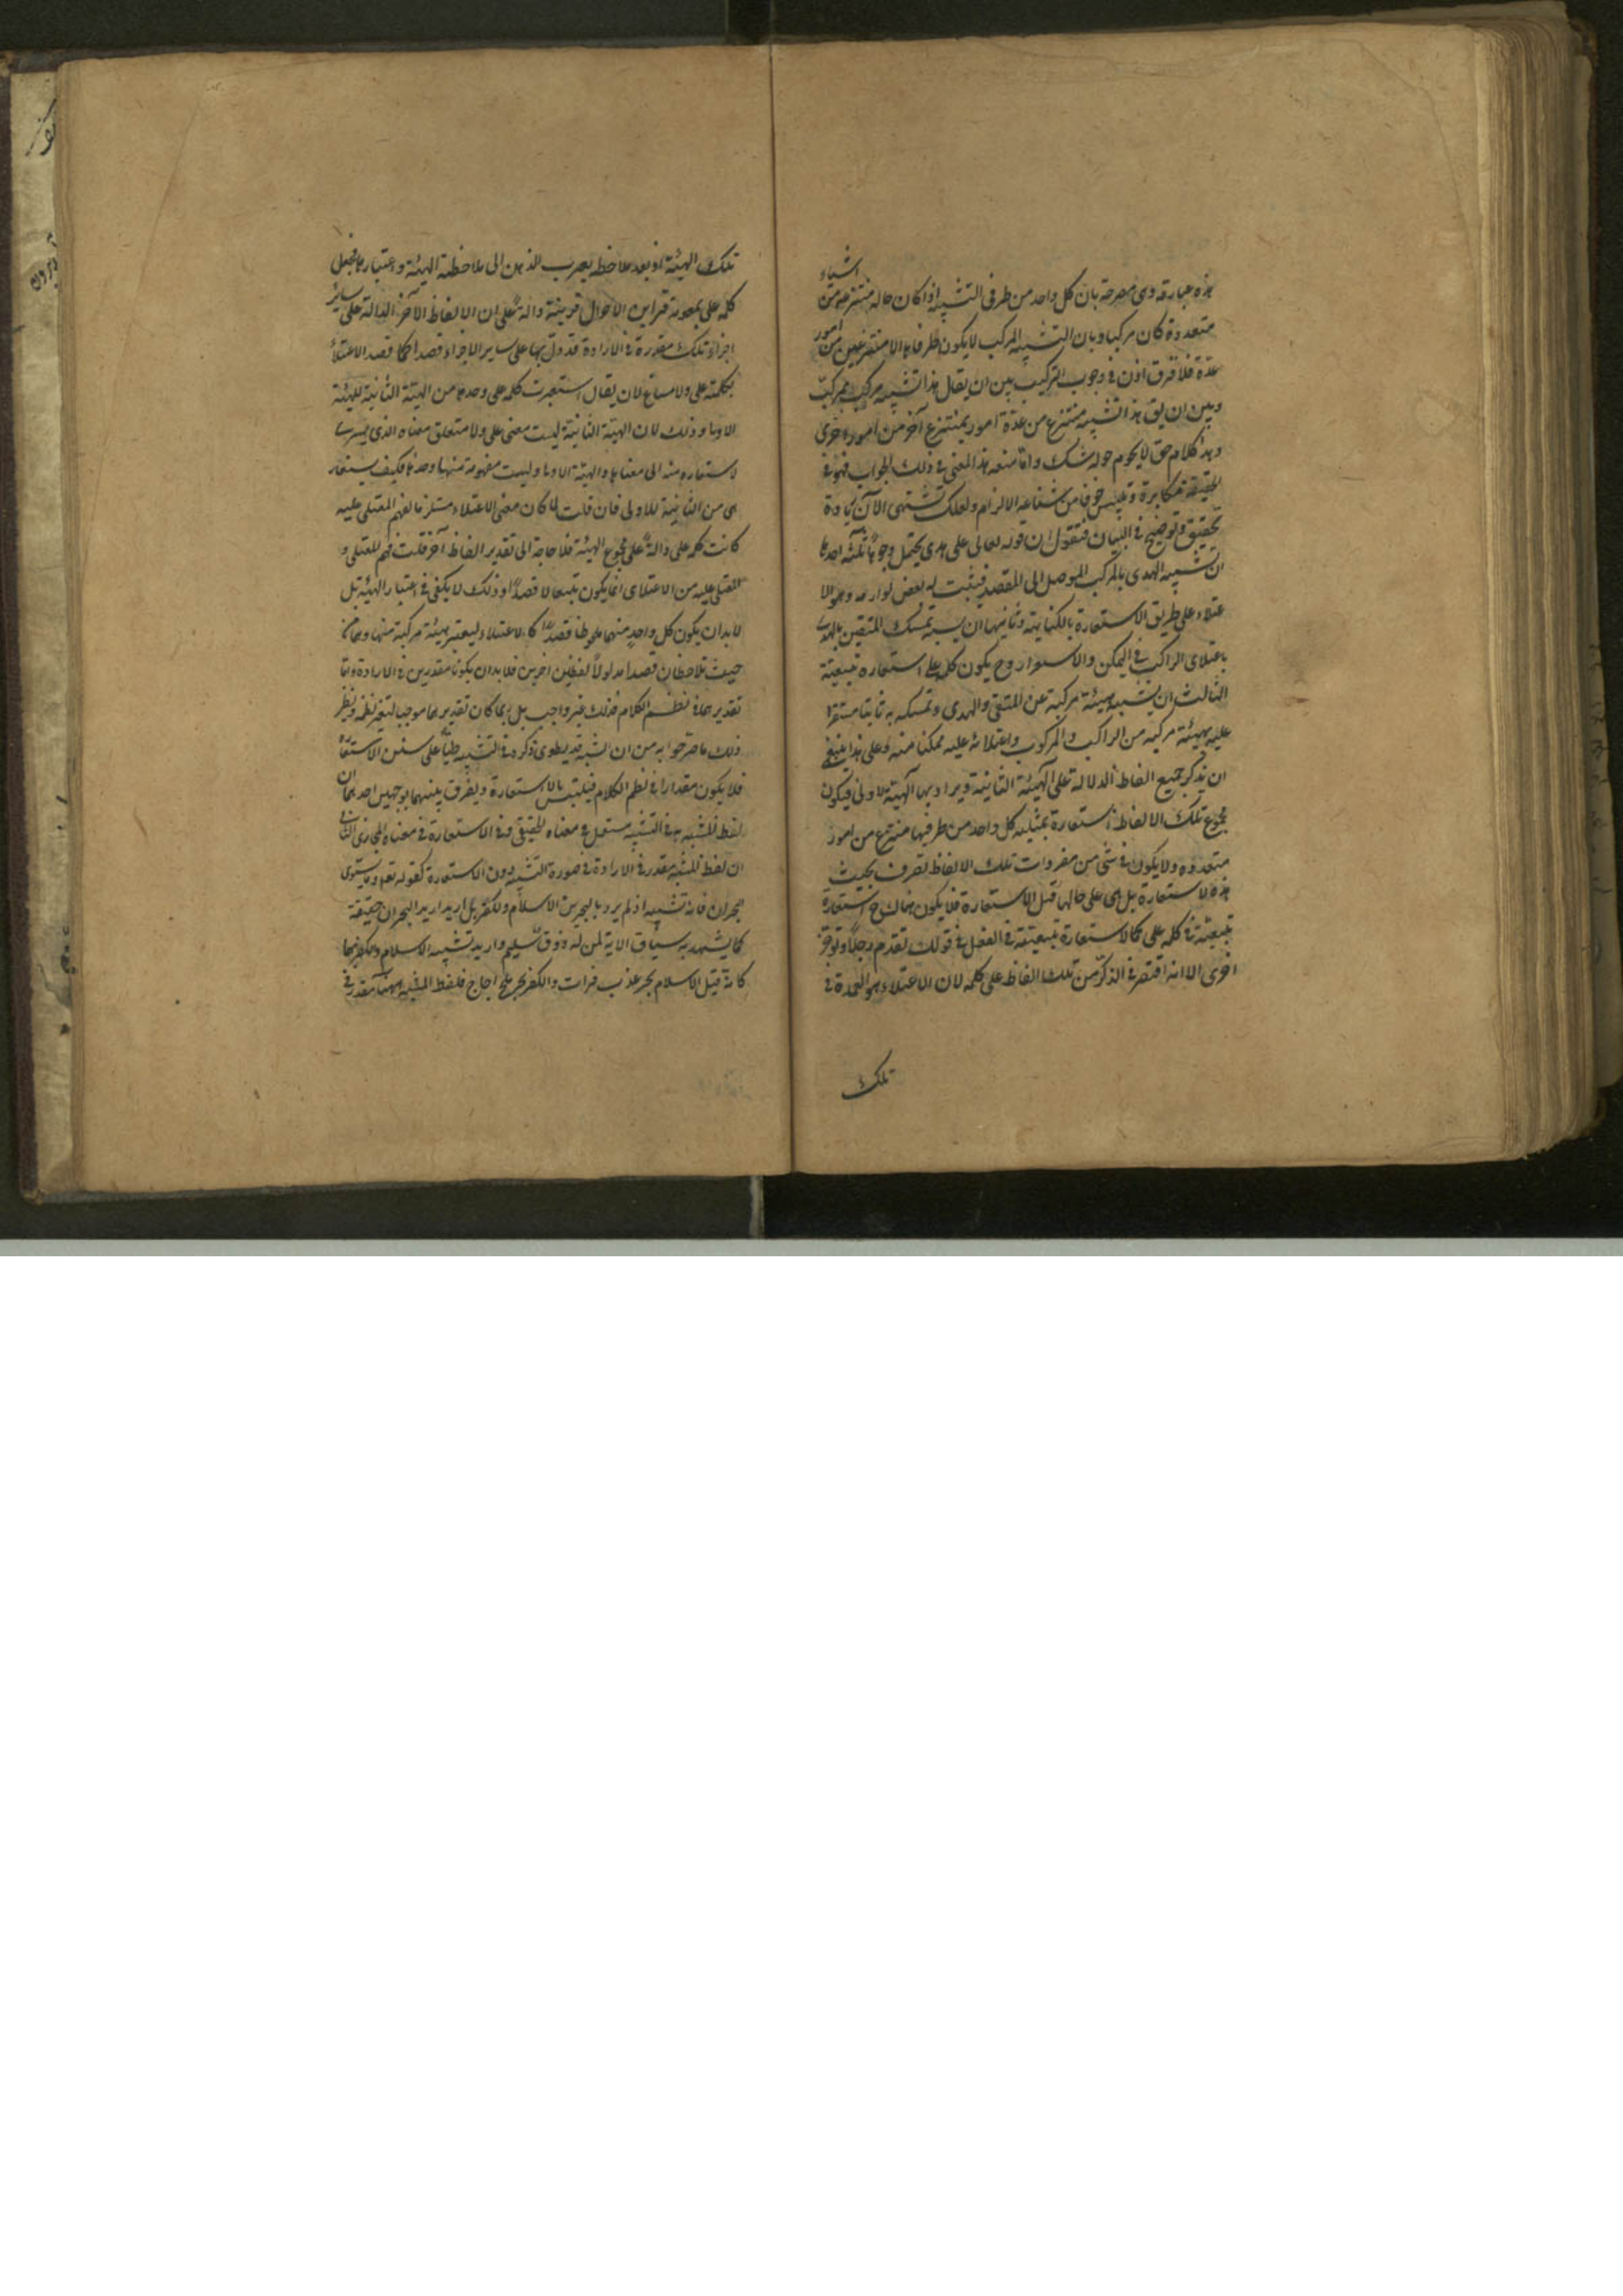 هذه عبارته وهى مصرحة بان كل واحد من طرفى التشبيه اذا كان حاله منتزعة من اشياء
متعددة كان مركبا وبان التشبيه المركب لا يكون طرفاه الا منتزعين من امور
عدة فلا فرق اذن فى وجوب التركيب بين ان يقال هذا تشبيه مركب بمركب
وبين ان يق هذا تشبيه منتزع من عدة امور بمنتزع آخر من امور اخرى
وهذا كلام حق لا يحوم حوله شك واما منعه هذا المعنى فى ذلك الجواب فهو فى
الحقيقة مكابرة وتلبيس خوفا من شناعة الالزام ولعلك تشتهى الآن زيادة
تحقيق وتوضيح فى البيان فنقول ان قوله تعالى على هدى يحتمل وجوها ثلثة احدها
ان تشبيه الهدى بالمركب الموصل الى المقصد فيثبت له بعض لوازمه وهو الا
عتلاء على طريق الاستعارة بالكناية وثانيها ان يشبه تمسك المتقين بالهدى
باعتلاى الراكب فى التمكن والاستقرار وح يكون كلمة على استعارة تبعية
الثالث ان يشبه هيئة مركبة من المتقى والهدى وتمسكه به ثابتا مستقرا
عليه بهيئة مركبة من الراكب والمركوب واعتلائه عليه متمكنا منه وعلى هذا ينبغى
ان يذكر جميع الفاظ الدلالة على الهيئة الثانية ويراد بها الهيئة الاولى فيكون
مجموع تلك الالفاظ استعارة تمثيليه كل واحد من طرفيها منتزع من امور
متعدده ولا يكون فى شئ من مفردات تلك الالفاظ تصرف بحيث
هذه الاستعارة بل هى على حالها قبل الاستعارة فلا يكون هنالك ح استعارة
تبعية فى كلمه على كما لا استعارة تبعية فى الفعل فى قولك تقدم رجلا وتوخر
اخرى الا انه اقتصر فى الذكر من تلك الفاظ على كلمه لان الاعتلاء هو العمدة فى
تلك
تلك الهيئة اذ بعد ملاحظه يقرب الذهن الى ملاحظة الهيئة واعتبارها فجعل
كلمه على بمعونة قراين الاحوال قرينة دالة على ان الالفاظ الآخر الدالة على سائر
اجزاء تلك مقدرة فى الارادة قد دل بها على ساير الاجزاء قصدا كما قصد الاعتلاء
بكلمة على ولا مساغ لان يقال استعيرت كلمه على وحدها من الهيئة الثانية للهيئة
الاولى وذلك لان الهيئة الثانية ليست معنى على ولا متعلق معناه الذى يسرى
الاستعاره منه الى معناها والهيئة الاولى وليست مفهومة منها وحدها فكيف يستعار
هى من الثانية للاولى فان قلت لما كان معنى الاعتلاء مستلزما لفهم المعتلى عليه
كانت كلمه على دالة على مجموع الهيئة فلا حاجة الى تقدير الفاظ آخر قلت فهم المعتلى و
المعتلى عليه من الاعتلاى انما يكون تبعا لا قصدا وذلك لا يكفى فى اعتبار الهيئة بل
لا بد ان يكون كل واحد منهما ملحوظا قصدا كالاعتلاء ليعتبر هيئة مركبة منها وهما من
حيث تلاحظان قصدا مدلولا لفظين اخرين فلا بد ان يكونا مقدرين فى الارادة واما
تقديرهما فى نظم الكلام فذلك غير واجب بل ربما كان تقديرهما موجبا لتغير نظمه ونظير
ذلك ما صرحوا به من ان المشبه قد يطوى ذكره فى التشبيه طيا على سنن الاستعارة
فلا يكون مقدارا فى نظم الكلام فيلتبس بالاستعارة ويفرق بينهما بوجهين احدهما ان
لفظ المشبه به فى التشبيه مستعمل فى معناه الحقيقى وفى الاستعارة فى معناه المجازى الثانى
ان لفظ المشبه مقدر فى الارادة فى صورة التشبيه دون الاستعارة كقوله تعم وما يستوى
البحران فانه تشبيه اذ لم يرد بالبحرين الاسلام والكفر بل اريد اريد البحران حقيقة
كما يشهد به سياق الاية لمن له ذوق سليم واريد تشبيه الاسلام والكفر بهما
كانه قيل الاسلام بحر عذب فرات والكفر بحر ملح اجاج فلفظ المشبه ههنا مقدر فى